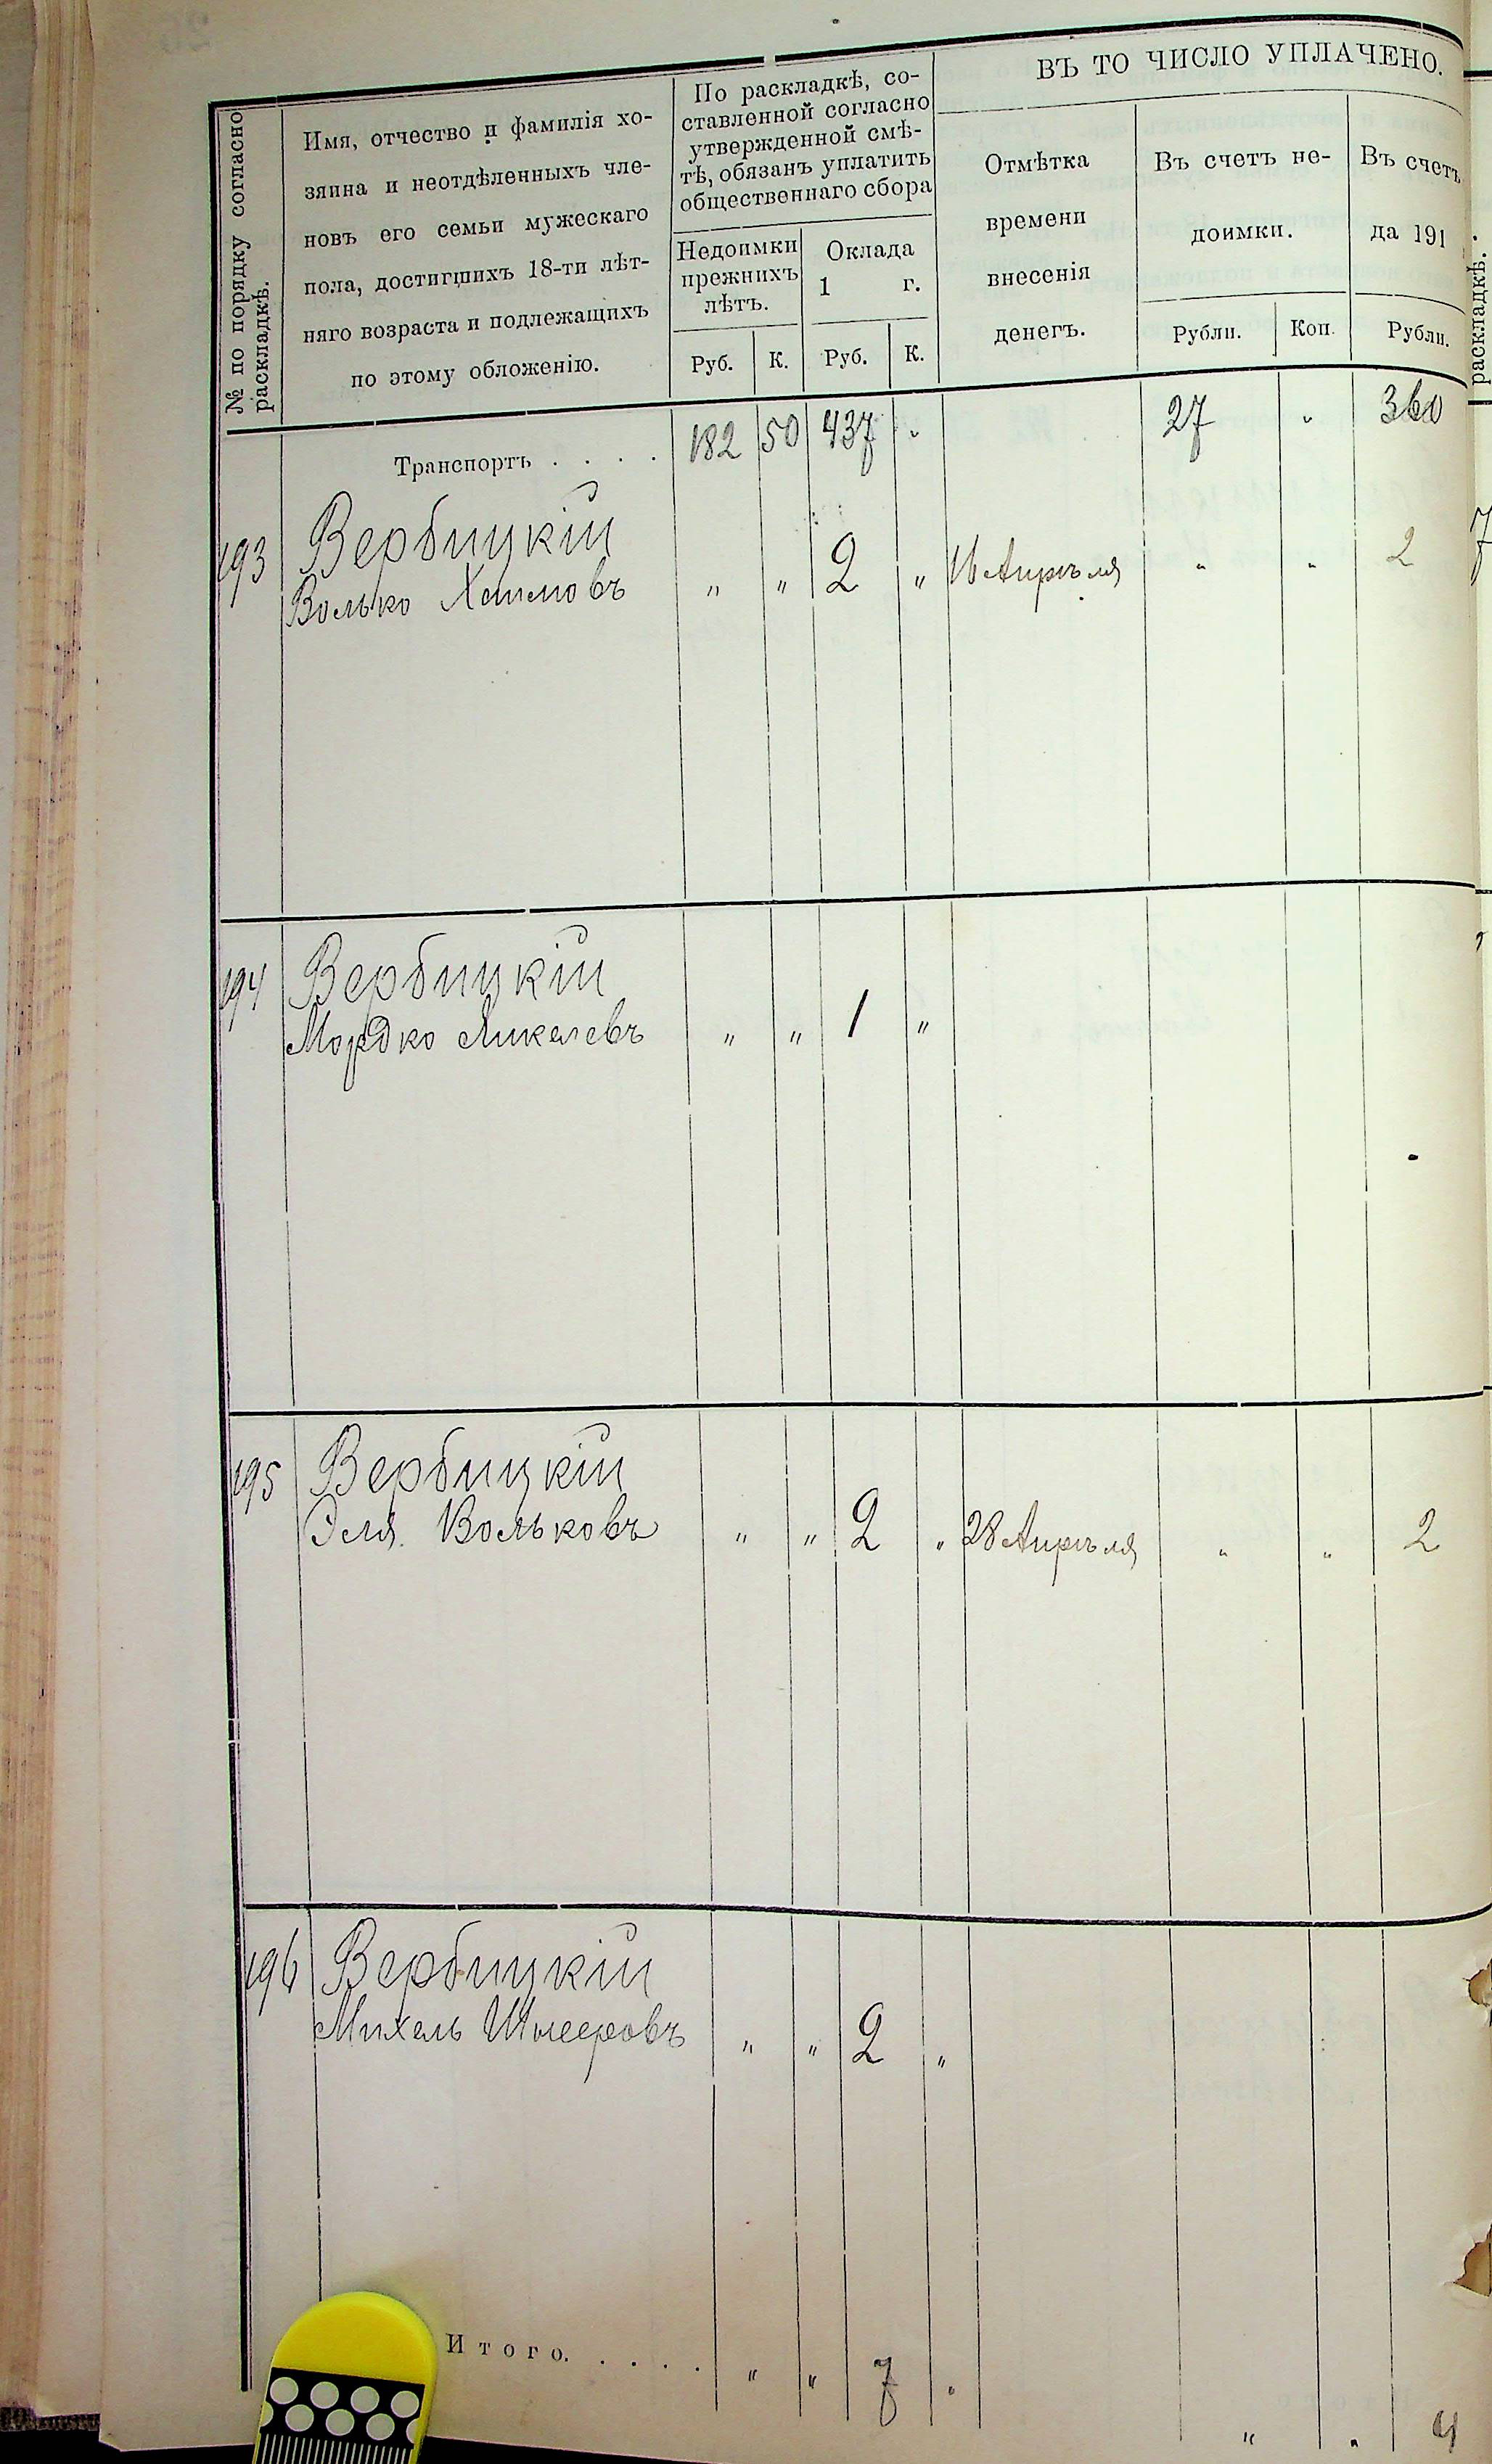 ВЪ ТО ЧИСЛО УПЛАЧЕНО.
№ по порядку согласно
раскладкѣ.
Имя, отчество и фамилія хо-
зяина и неотдѣленныхъ чле-
новъ его семьи мужескаго
пола, достигшихъ 18-ти лѣт-
няго возраста и подлежащихъ
по этому обложенію.
По раскладкѣ, со-
ставленной согласно
утвержденной смѣ-
тѣ, обязанъ уплатить
общественнаго сбора
Недоимки
прежнихъ
лѣтъ.
Оклада
1 г.
Руб. К. Руб. К.
Отмѣтка
времени
внесенія
денегъ.
Въ счетъ не-
доимки.
Рубли. Коп.
Въ счетъ
да 191
Рубли.
раскладкѣ.
Транспортъ . . . . 182 50 437 " 27 " 360
193 Вербицкій
Волько Хаимовъ " " 2 " 16 Апрѣля " " 2
194 Вербицкій
Мордко " " 1 "
195 Вербицкій
Эля Вольковъ " " 2 " 28 Апрѣля " " 2
196 Вербицкій
Михель " " 2 "
Итого. . . . . " " 7 " " " 4